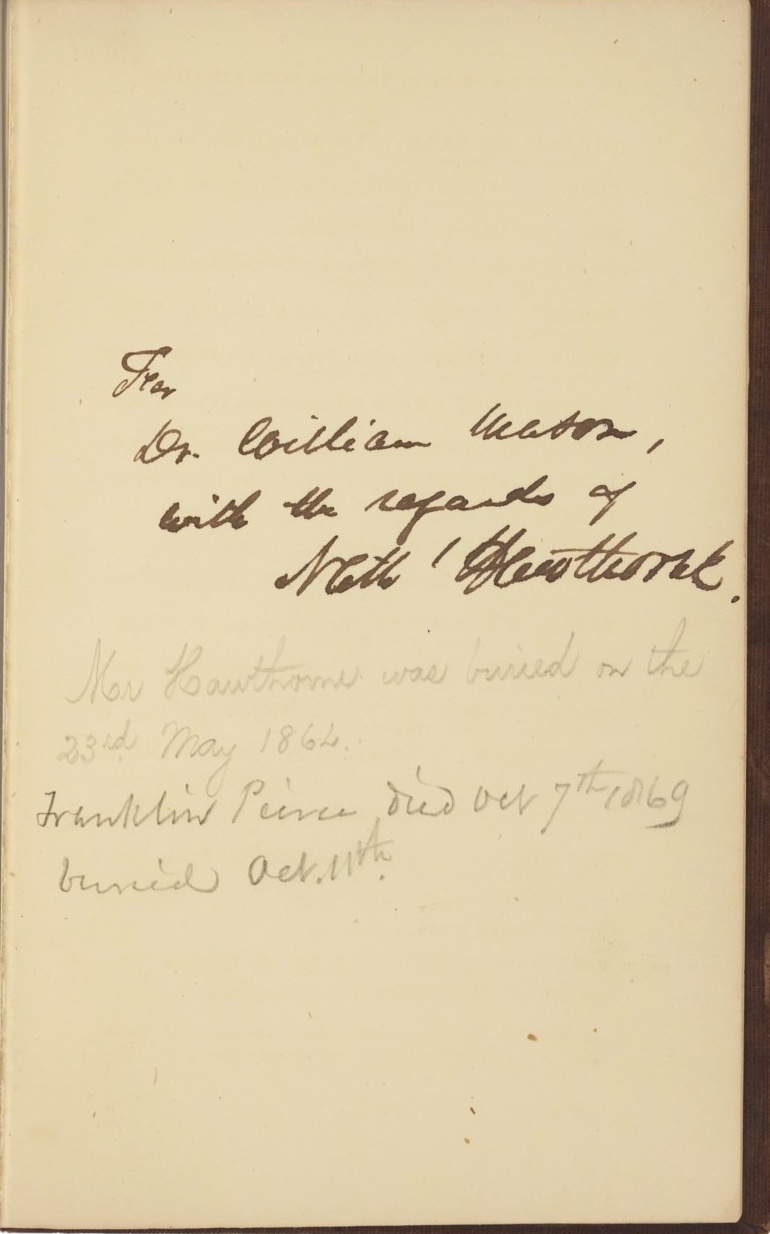 For
Dr. William Mason,
with the regards of
Nath' Hawthorne.
Mr Hawthorne was buried on the
23rd May 1864.
Franklin Peirce died Oct 7th 1869
buried Oct. 11th.